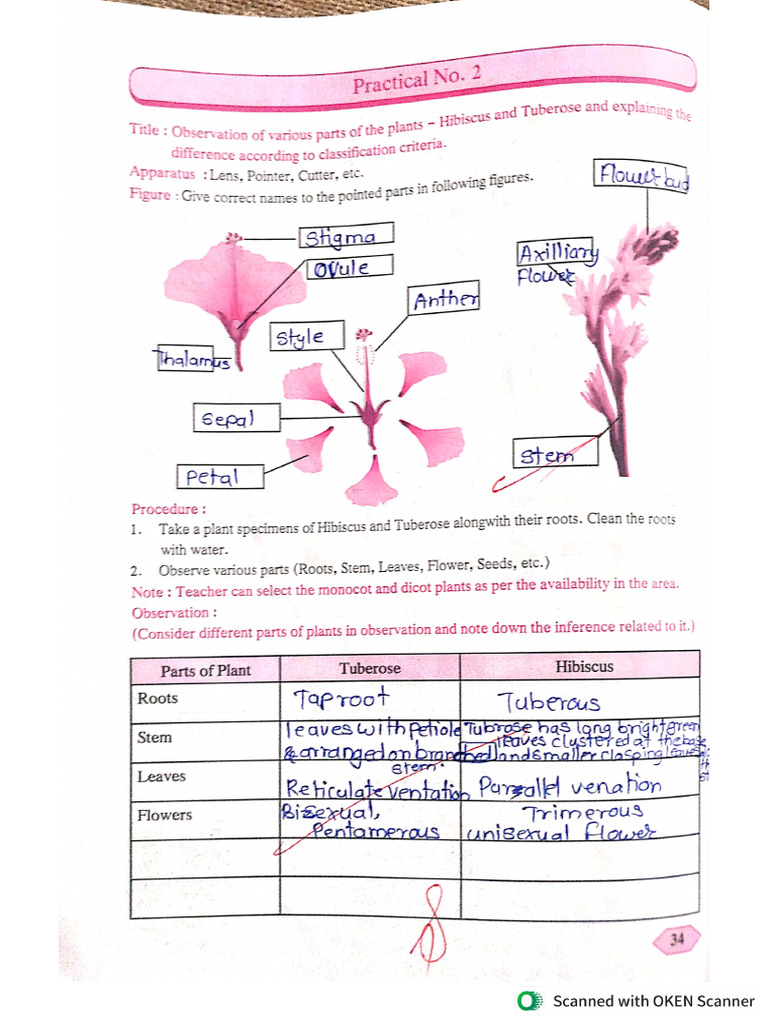 Practical No. 2
Title : Observation of various parts of the plants – Hibiscus and Tuberose and explaining the
difference according to classification criteria.
Apparatus : Lens, Pointer, Cutter, etc.
Figure : Give correct names to the pointed parts in following figures.
Flower bud
Stigma
Ovule
Axilliary
flower
Anther
Style
Thalamus
Sepal
Stem
Petal
Procedure :
1. Take a plant specimens of Hibiscus and Tuberose alongwith their roots. Clean the roots
with water.
2. Observe various parts (Roots, Stem, Leaves, Flower, Seeds, etc.)
Note : Teacher can select the monocot and dicot plants as per the availability in the area.
Observation :
(Consider different parts of plants in observation and note down the inference related to it.)
Parts of Plant Tuberose Hibiscus
Roots Taproot Tuberous
Stem leaves with petiole Tubrose has long bright green
& arranged on branched leaves clustered at the base
stem. and smaller clasping leaves
Leaves Reticulate ventation Parallel venation
Flowers Bisexual, Trimerous
Pentamerous unisexual flower
34
Scanned with OKEN Scanner